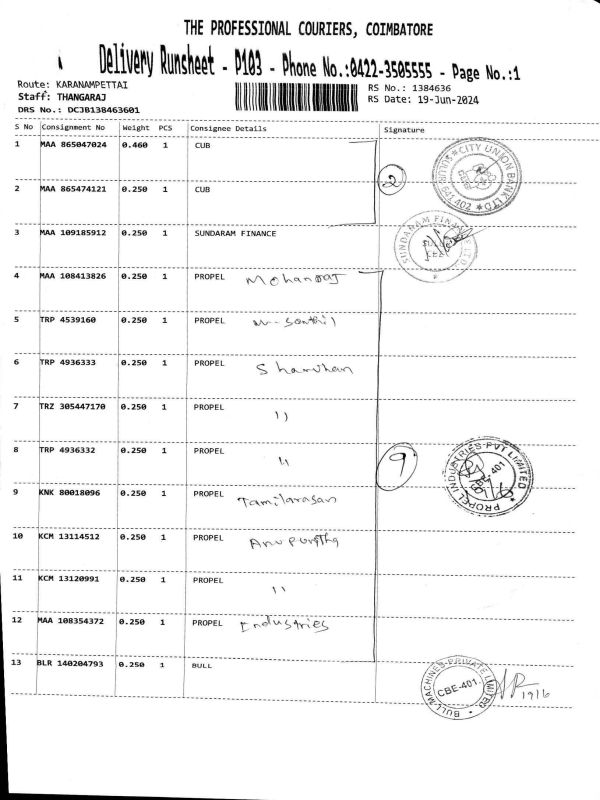 THE PROFESSIONAL COURIERS, COIMBATORE
Delivery Runsheet - P103 - Phone No.:0422-3505555 - Page No.:1
Route: KARANAMPETTAI
Staff: THANGARAJ
DRS No.: DCJB138463601
RS No.: 1384636
RS Date: 19-Jun-2024
S No Consignment No Weight PCS Consignee Details Signature
1 MAA 865047024 0.460 1 CUB
2 MAA 865474121 0.250 1 CUB
2
CITY UNION BANK LTD
SULUR 641 402
3 MAA 109185912 0.250 1 SUNDARAM FINANCE
SUNDARAM FINANCE LTD
4 MAA 108413826 0.250 1 PROPEL Mohanraj
5 TRP 4539160 0.250 1 PROPEL
6 TRP 4936333 0.250 1 PROPEL Sharuhan
7 TRZ 305447170 0.250 1 PROPEL "
8 TRP 4936332 0.250 1 PROPEL "
9
PROPEL INDUSTRIES PVT LIMITED
CBE-401
9 KNK 80018096 0.250 1 PROPEL Tamilarasan
10 KCM 13114512 0.250 1 PROPEL
11 KCM 13120991 0.250 1 PROPEL "
12 MAA 108354372 0.250 1 PROPEL Industries
13 BLR 140204793 0.250 1 BULL
BULL MACHINES PRIVATE LIMITED
CBE-401.
19/6